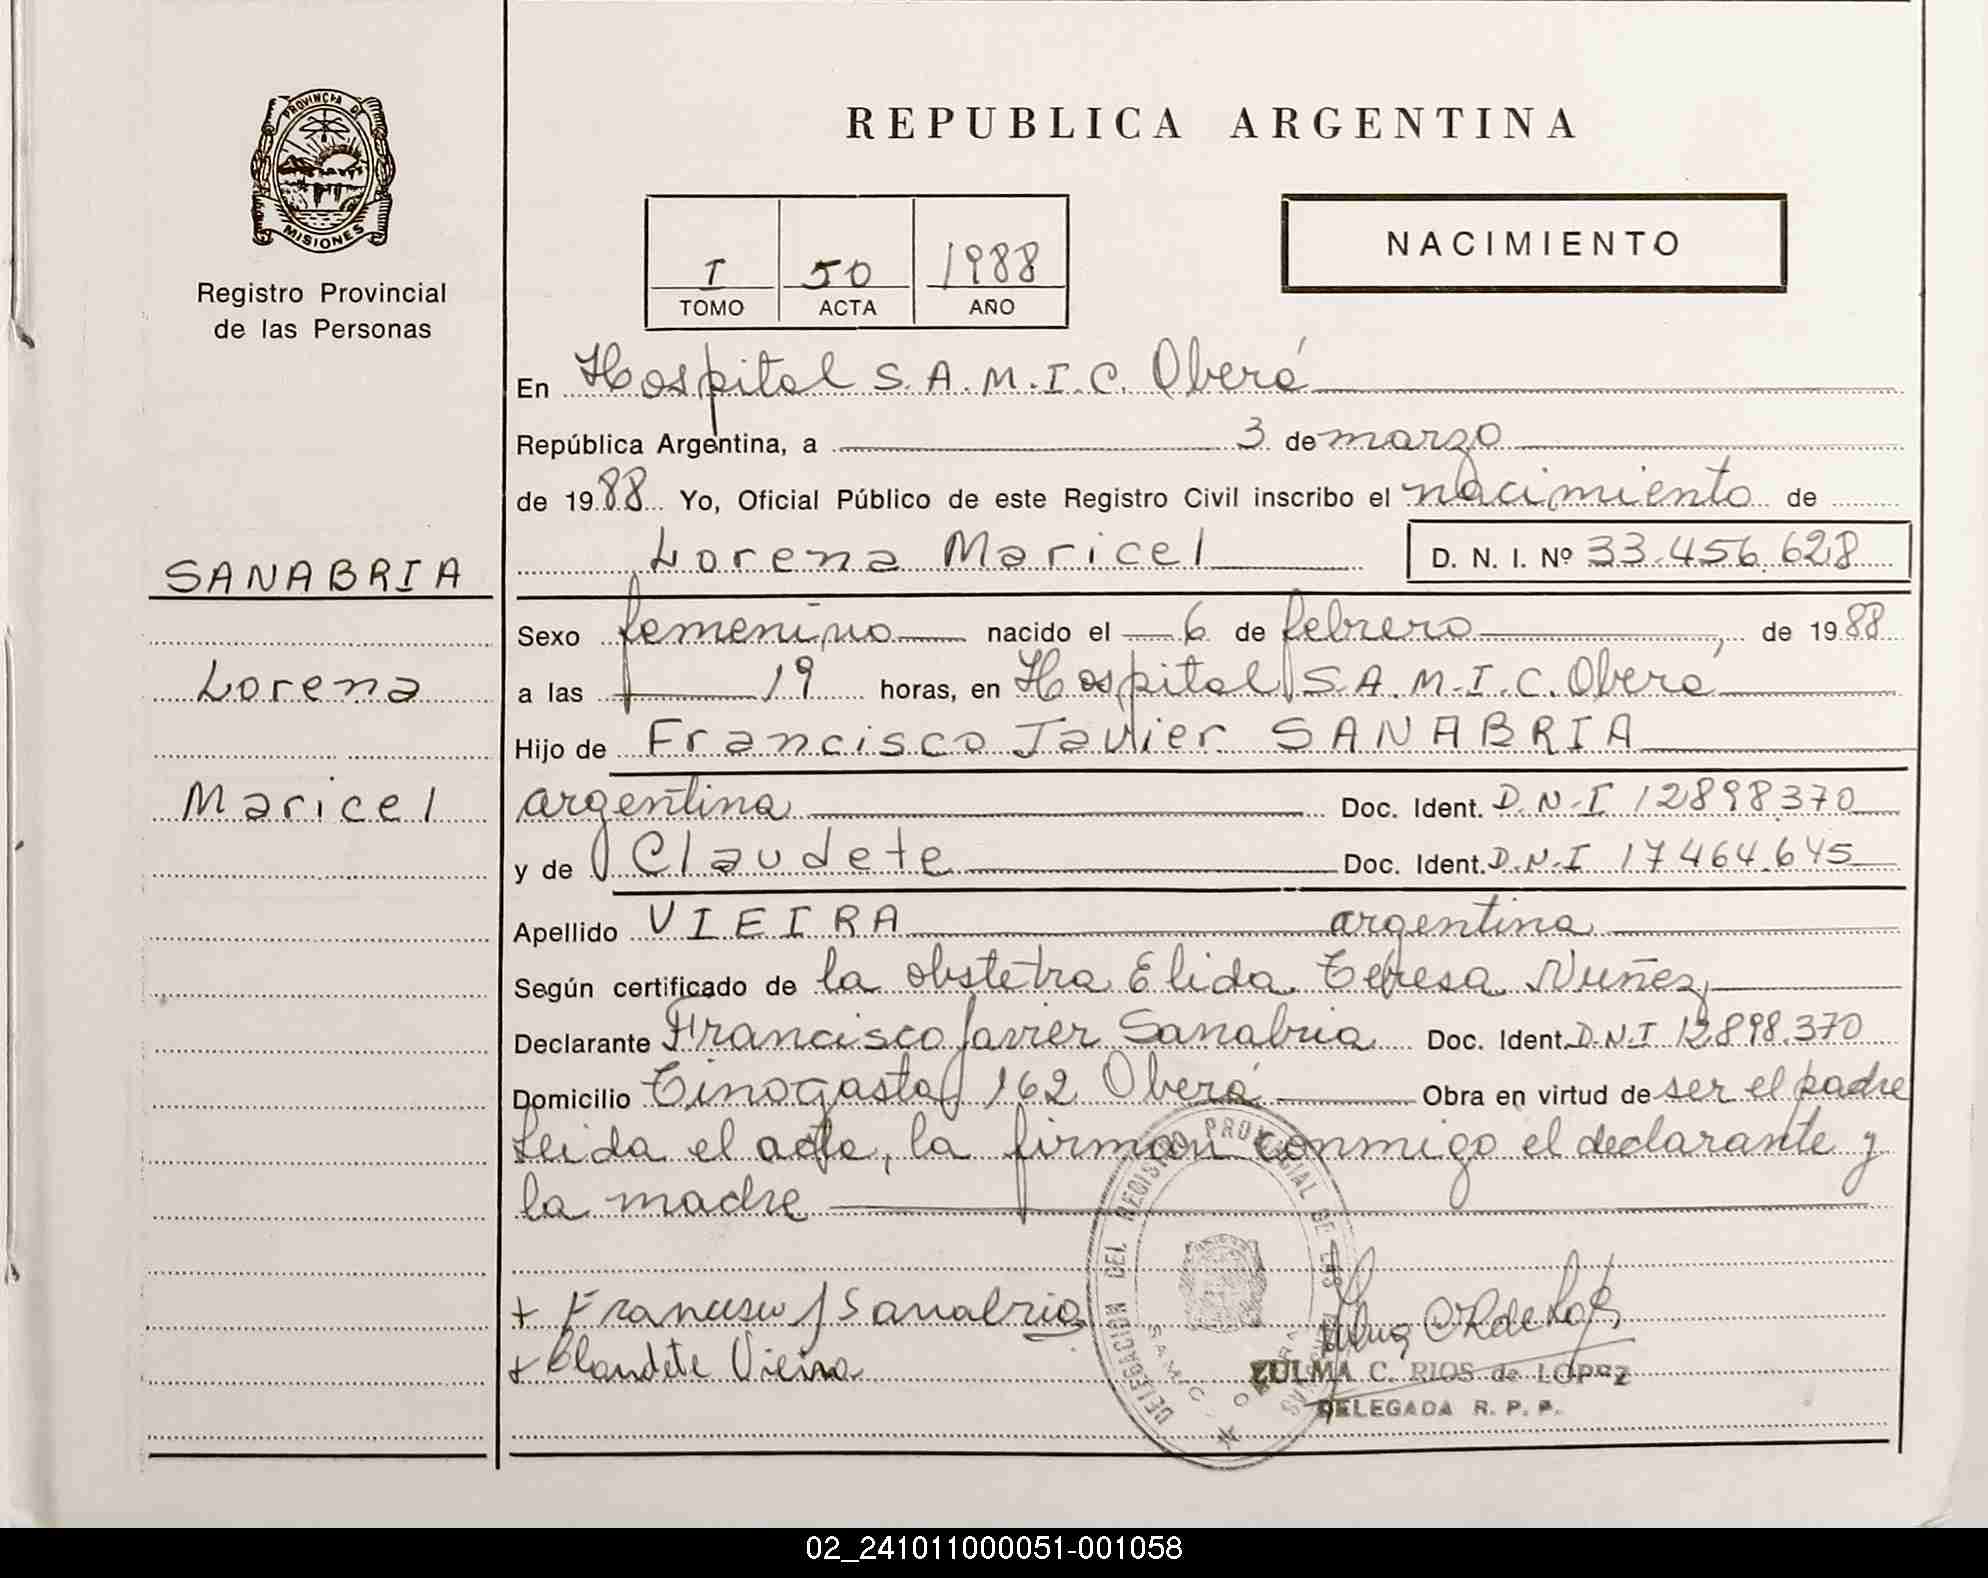 PROVINCIA DE
MISIONES
Registro Provincial
de las Personas
SANABRIA
Lorena
Maricel
REPUBLICA ARGENTINA
I 50 1988
TOMO ACTA AÑO
NACIMIENTO
En Hospital S.A.M.I.C. Oberá
República Argentina, a 3 de marzo
de 1988 Yo, Oficial Público de este Registro Civil inscribo el nacimiento de
Lorena Maricel D. N. I. Nº 33.456.628
Sexo femenino nacido el 6 de febrero, de 1988
a las 19 horas, en Hospital S.A.M.I.C. Oberá
Hijo de Francisco Javier SANABRIA
argentina Doc. Ident. D.N.I 12898.370
y de Claudete Doc. Ident. D.N.I 17464.645
Apellido VIEIRA argentina
Según certificado de la obstetra Elida Teresa Nuñez
Declarante Francisco Javier Sanabria Doc. Ident. D.N.I 12898.370
Domicilio Tinogasta 162 Oberá Obra en virtud de ser el padre
Leida el acta, la firman conmigo el declarante y
la madre
+ Francisco J Sanabria
+ Claudete Vieira
DELEGACION DEL REGISTRO PROVINCIAL DE LAS
ZULMA C. RIOS de LOPEZ
DELEGADA R. P. P.
02_241011000051-001058